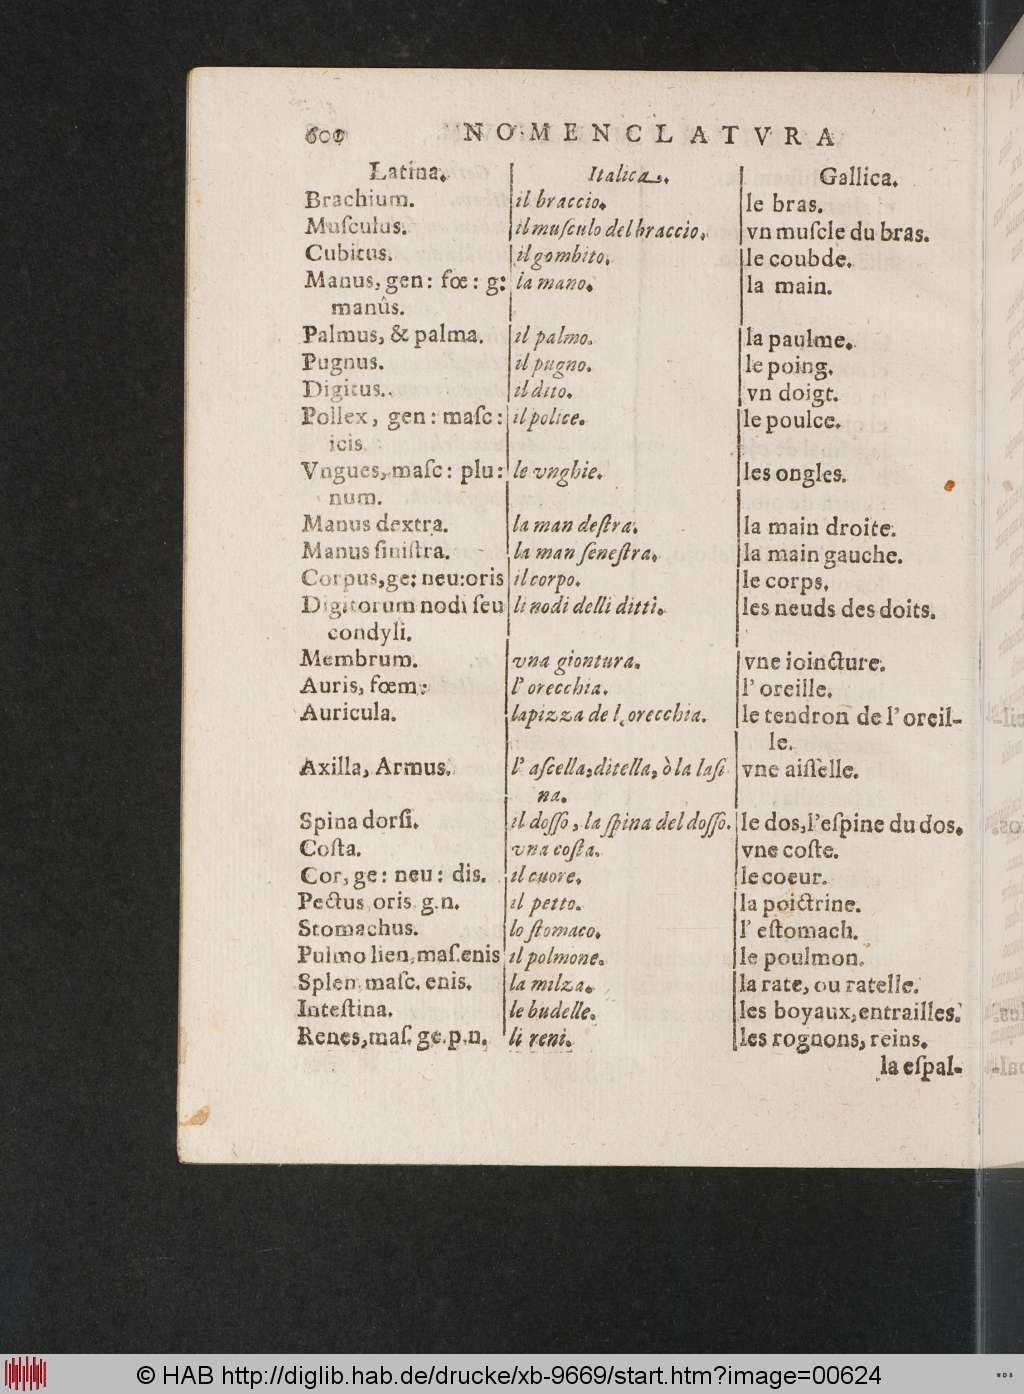 NOMENCLATVRA
Latina. Italica. Gallica.
Brachium. il braccio. le bras.
Muſculus. il muſculo del braccio. vn muſcle du bras.
Cubitus. il gombito. le coubde.
Manus, gen: fœ: g: la mano. la main.
manûs.
Palmus, & palma. il palmo. la paulme.
Pugnus. il pugno. le poing.
Digitus. il dito. vn doigt.
Pollex, gen: maſc: il police. le poulce.
icis.
Vngues, maſc: plu: le vnghie. les ongles.
num.
Manus dextra. la man deſtra. la main droite.
Manus ſiniſtra. la man ſeneſtra. la main gauche.
Corpus, ge: neu: oris il corpo. le corps.
Digitorum nodi ſeu li nodi delli ditti. les neuds des doits.
condyli.
Membrum. vna giontura. vne ioincture.
Auris, fœm: l' orecchia. l' oreille.
Auricula. la pizza de l, orecchia. le tendron de l' oreil-
le.
Axilla, Armus. l' aſcella, ditella, ò la laſi vne aiſſelle.
na.
Spina dorſi. il doſſo, la ſpina del doſſo. le dos, l'eſpine du dos.
Coſta. vna coſta. vne coſte.
Cor, ge: neu: dis. il cuore. le coeur.
Pectus oris g.n. il petto. la poictrine.
Stomachus. lo ſtomaco. l' eſtomach.
Pulmo lien, maſ. enis il polmone. le poulmon.
Splen maſc. enis. la milza. la rate, ou ratelle.
Inteſtina. le budelle. les boyaux, entrailles.
Renes, maſ. ge.p.n. li reni. les rognons, reins.
la eſpal-
© HAB http://diglib.hab.de/drucke/xb-9669/start.htm?image=00624